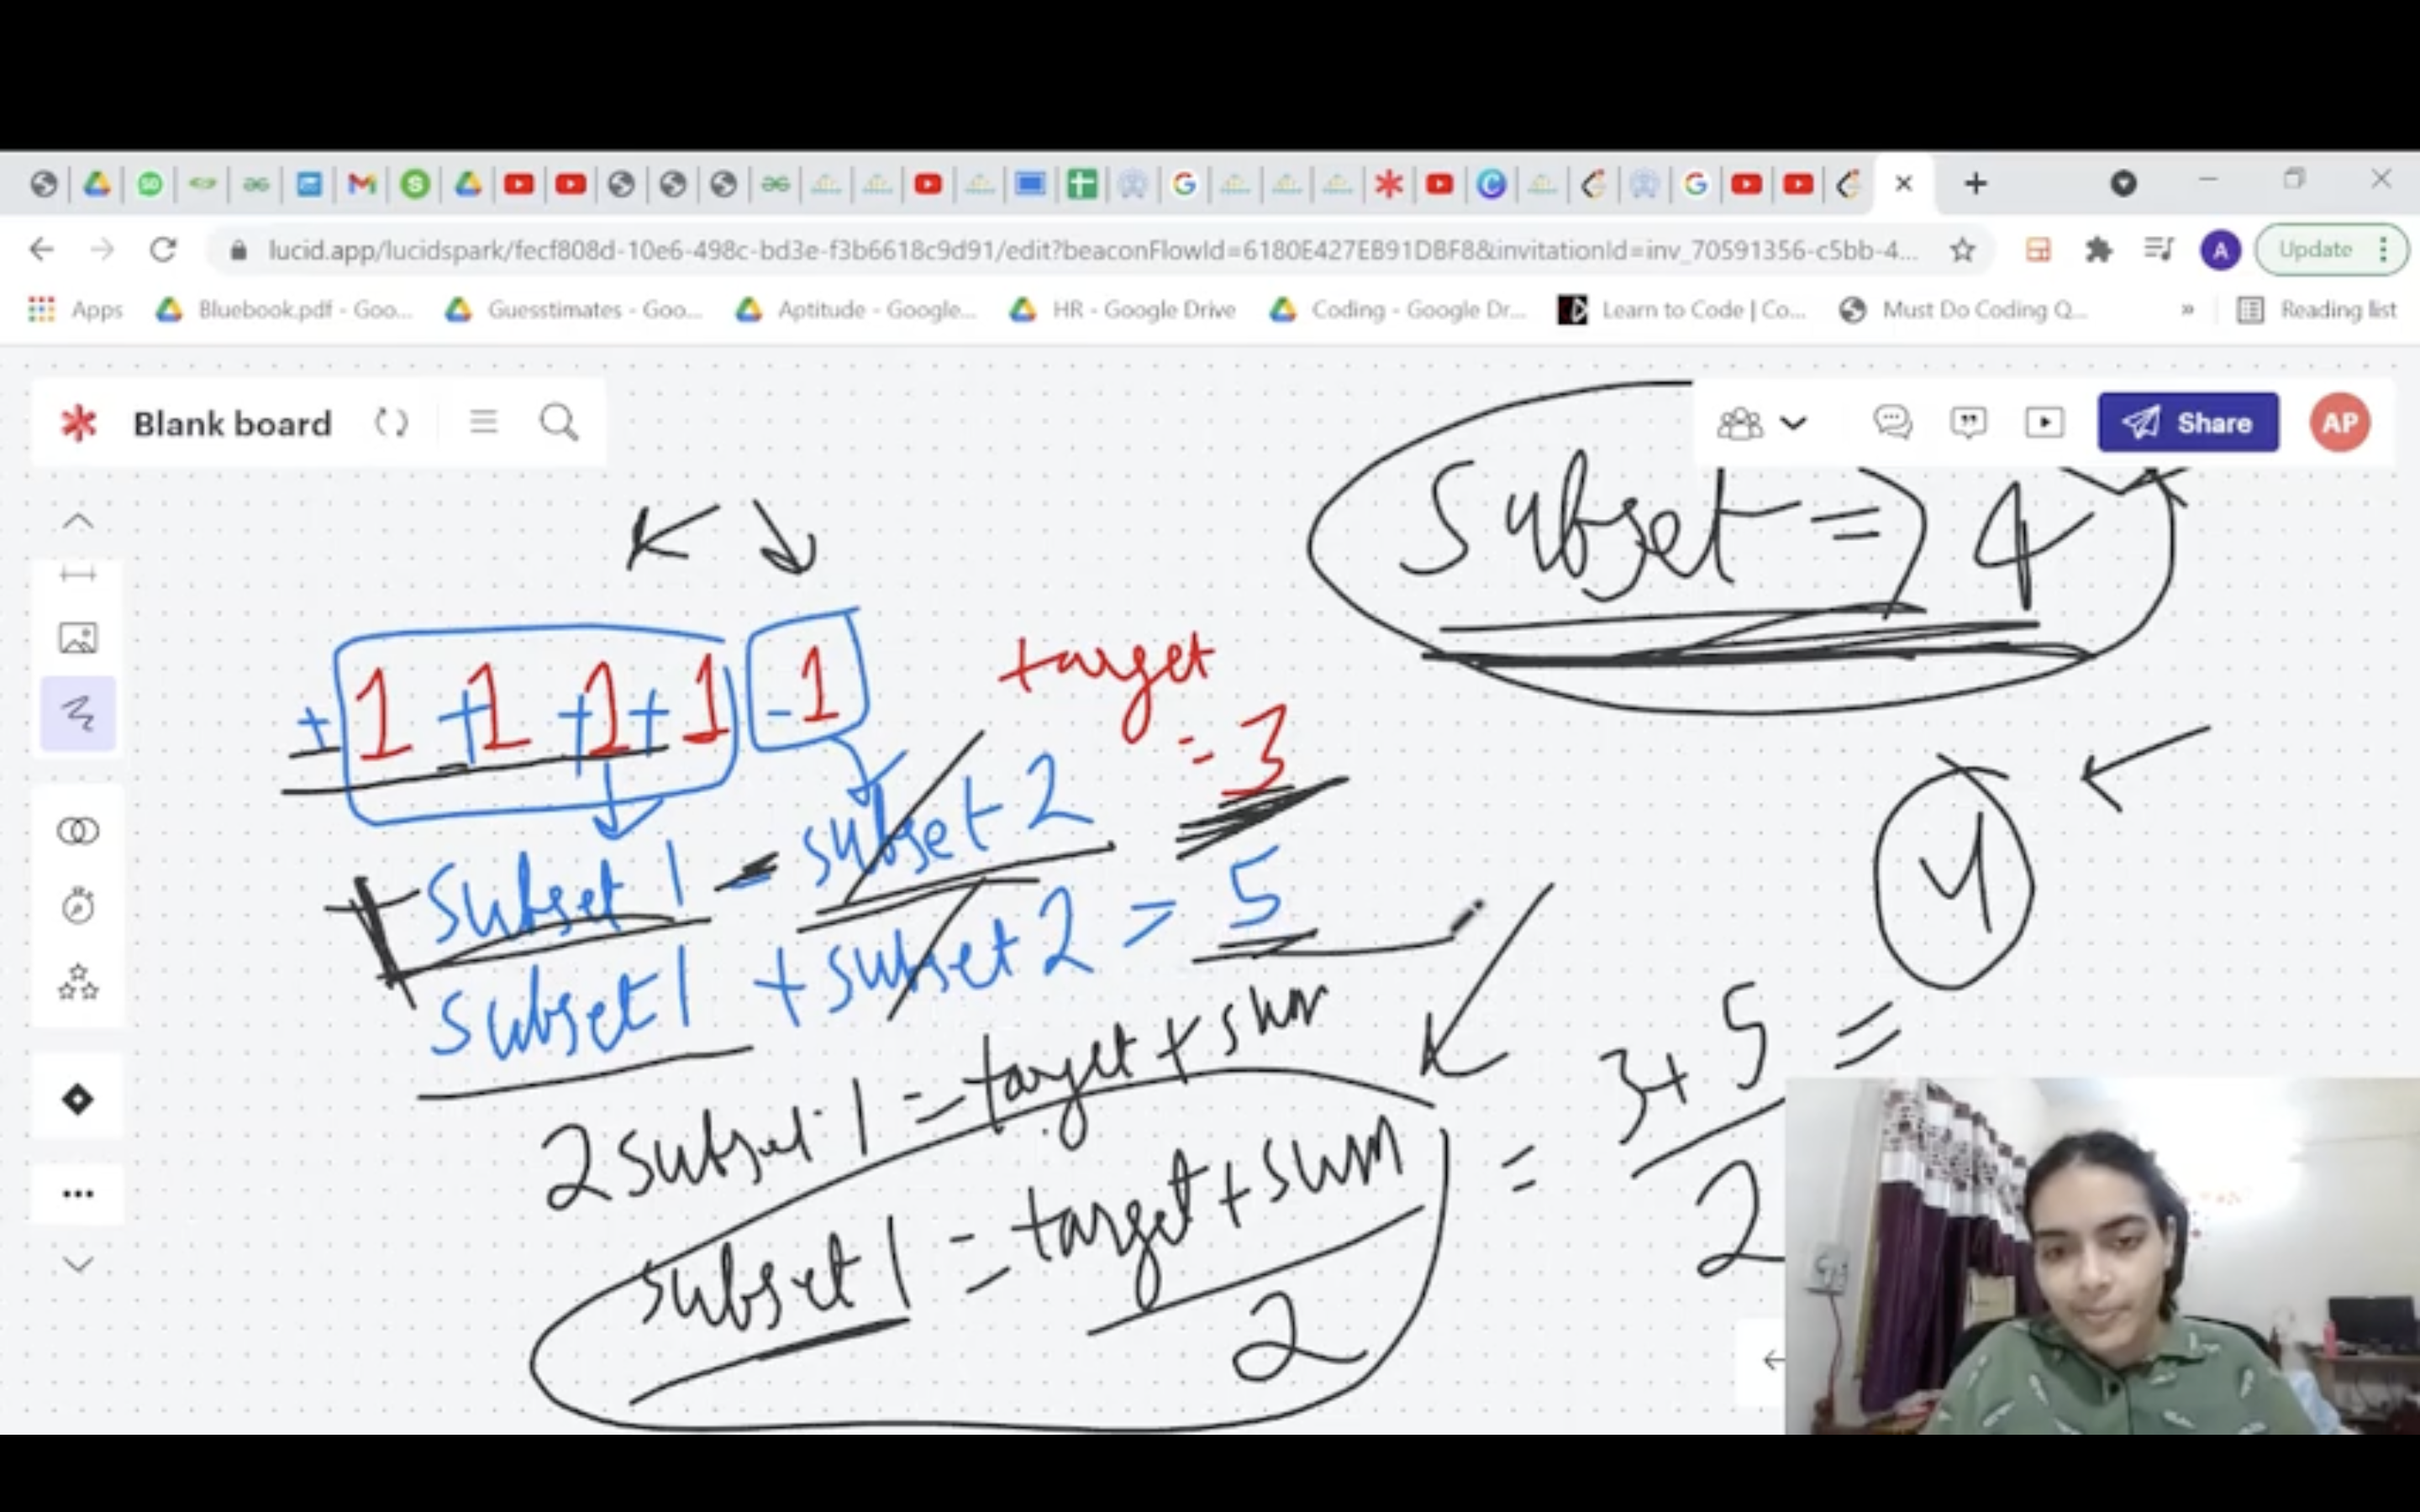 lucid.app/lucidspark/fecf808d-10e6-498c-bd3e-f3b6618c9d91/edit?beaconFlowId=6180E427EB91DBF8&invitationId=inv_70591356-c5bb-4...
A
Update
Apps
Bluebook.pdf - Goo...
Guesstimates - Goo...
Aptitude - Google...
HR - Google Drive
Coding - Google Dr...
Learn to Code | Co...
Must Do Coding Q...
»
Reading list
Blank board
Share
AP
Subset => 4
+ 1 + 1 + 1 + 1 - 1
target
= 3
+ Subset 1 - subset 2
subset 1 + subset 2 = 5
4
2 subset 1 = target + sum
subset 1 = target + sum
2
= 3 + 5 =
2